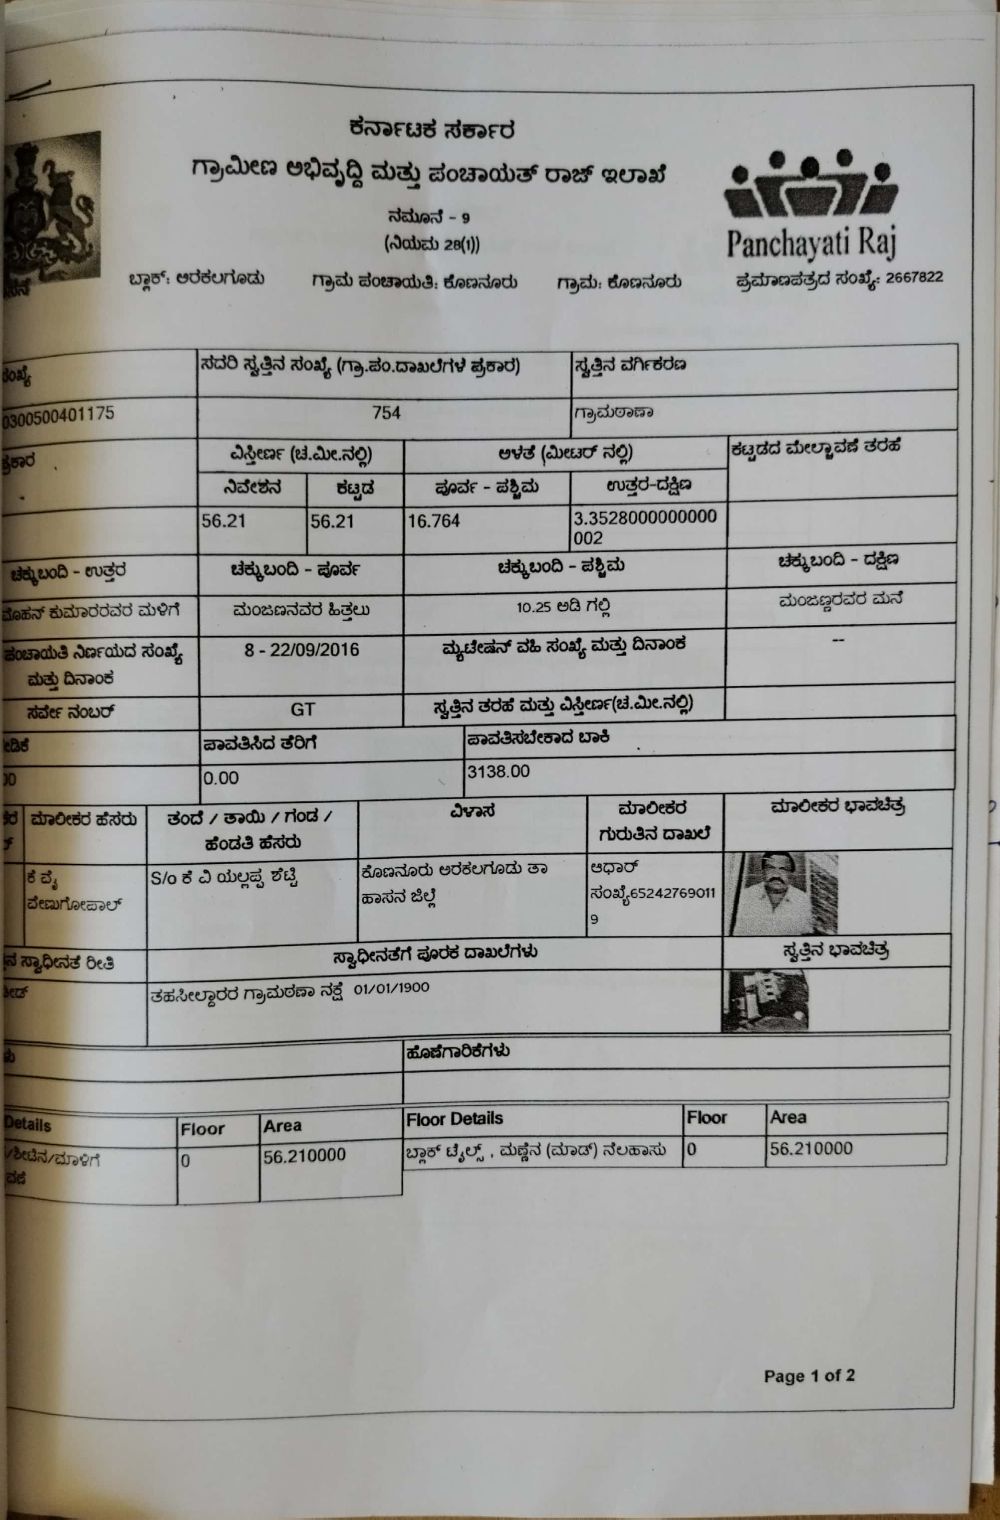 ಕರ್ನಾಟಕ ಸರ್ಕಾರ
ಗ್ರಾಮೀಣ ಅಭಿವೃದ್ಧಿ ಮತ್ತು ಪಂಚಾಯತ್ ರಾಜ್ ಇಲಾಖೆ
ನಮೂನೆ - 9
(ನಿಯಮ 28(1))
Panchayati Raj
ಬ್ಲಾಕ್: ಅರಕಲಗೂಡು ಗ್ರಾಮ ಪಂಚಾಯತಿ: ಕೊಣನೂರು ಗ್ರಾಮ: ಕೊಣನೂರು ಪ್ರಮಾಣಪತ್ರದ ಸಂಖ್ಯೆ: 2667822
ಸದರಿ ಸ್ವತ್ತಿನ ಸಂಖ್ಯೆ (ಗ್ರಾ.ಪಂ.ದಾಖಲೆಗಳ ಪ್ರಕಾರ) ಸ್ವತ್ತಿನ ವರ್ಗೀಕರಣ
0300500401175 754 ಗ್ರಾಮಠಾಣಾ
ವಿಸ್ತೀರ್ಣ (ಚ.ಮೀ.ನಲ್ಲಿ) ಅಳತೆ (ಮೀಟರ್ ನಲ್ಲಿ) ಕಟ್ಟಡದ ಮೇಲ್ಚಾವಣಿ ತರಹೆ
ನಿವೇಶನ ಕಟ್ಟಡ ಪೂರ್ವ - ಪಶ್ಚಿಮ ಉತ್ತರ-ದಕ್ಷಿಣ
56.21 56.21 16.764 3.3528000000000
002
ಚಕ್ಕುಬಂದಿ - ಉತ್ತರ ಚಕ್ಕುಬಂದಿ - ಪೂರ್ವ ಚಕ್ಕುಬಂದಿ - ಪಶ್ಚಿಮ ಚಕ್ಕುಬಂದಿ - ದಕ್ಷಿಣ
ಮೋಹನ್ ಕುಮಾರರವರ ಮಳಿಗೆ ಮಂಜಣನವರ ಹಿತ್ತಲು 10.25 ಅಡಿ ಗಲ್ಲಿ ಮಂಜಣ್ಣರವರ ಮನೆ
ಪಂಚಾಯತಿ ನಿರ್ಣಯದ ಸಂಖ್ಯೆ 8 - 22/09/2016 ಮ್ಯುಟೇಷನ್ ವಹಿ ಸಂಖ್ಯೆ ಮತ್ತು ದಿನಾಂಕ --
ಮತ್ತು ದಿನಾಂಕ
ಸರ್ವೇ ನಂಬರ್ GT ಸ್ವತ್ತಿನ ತರಹೆ ಮತ್ತು ವಿಸ್ತೀರ್ಣ(ಚ.ಮೀ.ನಲ್ಲಿ)
ಪಾವತಿಸಿದ ತೆರಿಗೆ ಪಾವತಿಸಬೇಕಾದ ಬಾಕಿ
0.00 3138.00
ಮಾಲೀಕರ ಹೆಸರು ತಂದೆ / ತಾಯಿ / ಗಂಡ / ವಿಳಾಸ ಮಾಲೀಕರ ಮಾಲೀಕರ ಭಾವಚಿತ್ರ
ಹೆಂಡತಿ ಹೆಸರು ಗುರುತಿನ ದಾಖಲೆ
ಕೆ ವೈ S/o ಕೆ ವಿ ಯಲ್ಲಪ್ಪ ಶೆಟ್ಟಿ ಕೊಣನೂರು ಅರಕಲಗೂಡು ತಾ ಆಧಾರ್
ವೇಣುಗೋಪಾಲ್ ಹಾಸನ ಜಿಲ್ಲೆ ಸಂಖ್ಯೆ65242769011
9
ಸ್ವಾಧೀನತೆ ರೀತಿ ಸ್ವಾಧೀನತೆಗೆ ಪೂರಕ ದಾಖಲೆಗಳು ಸ್ವತ್ತಿನ ಭಾವಚಿತ್ರ
ತಹಸೀಲ್ದಾರರ ಗ್ರಾಮಠಣಾ ನಕ್ಷೆ 01/01/1900
ಹೊಣೆಗಾರಿಕೆಗಳು
Details Floor Area Floor Details Floor Area
0 56.210000 ಬ್ಲಾಕ್ ಟೈಲ್ಸ್ , ಮಣ್ಣಿನ (ಮಾಡ್) ನೆಲಹಾಸು 0 56.210000
Page 1 of 2